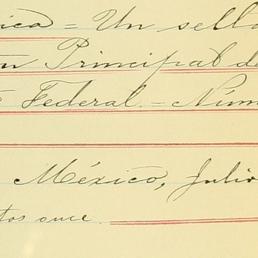 ica = Un sello
n Principal d
Federal. = Núm
México, Julio
tos once.